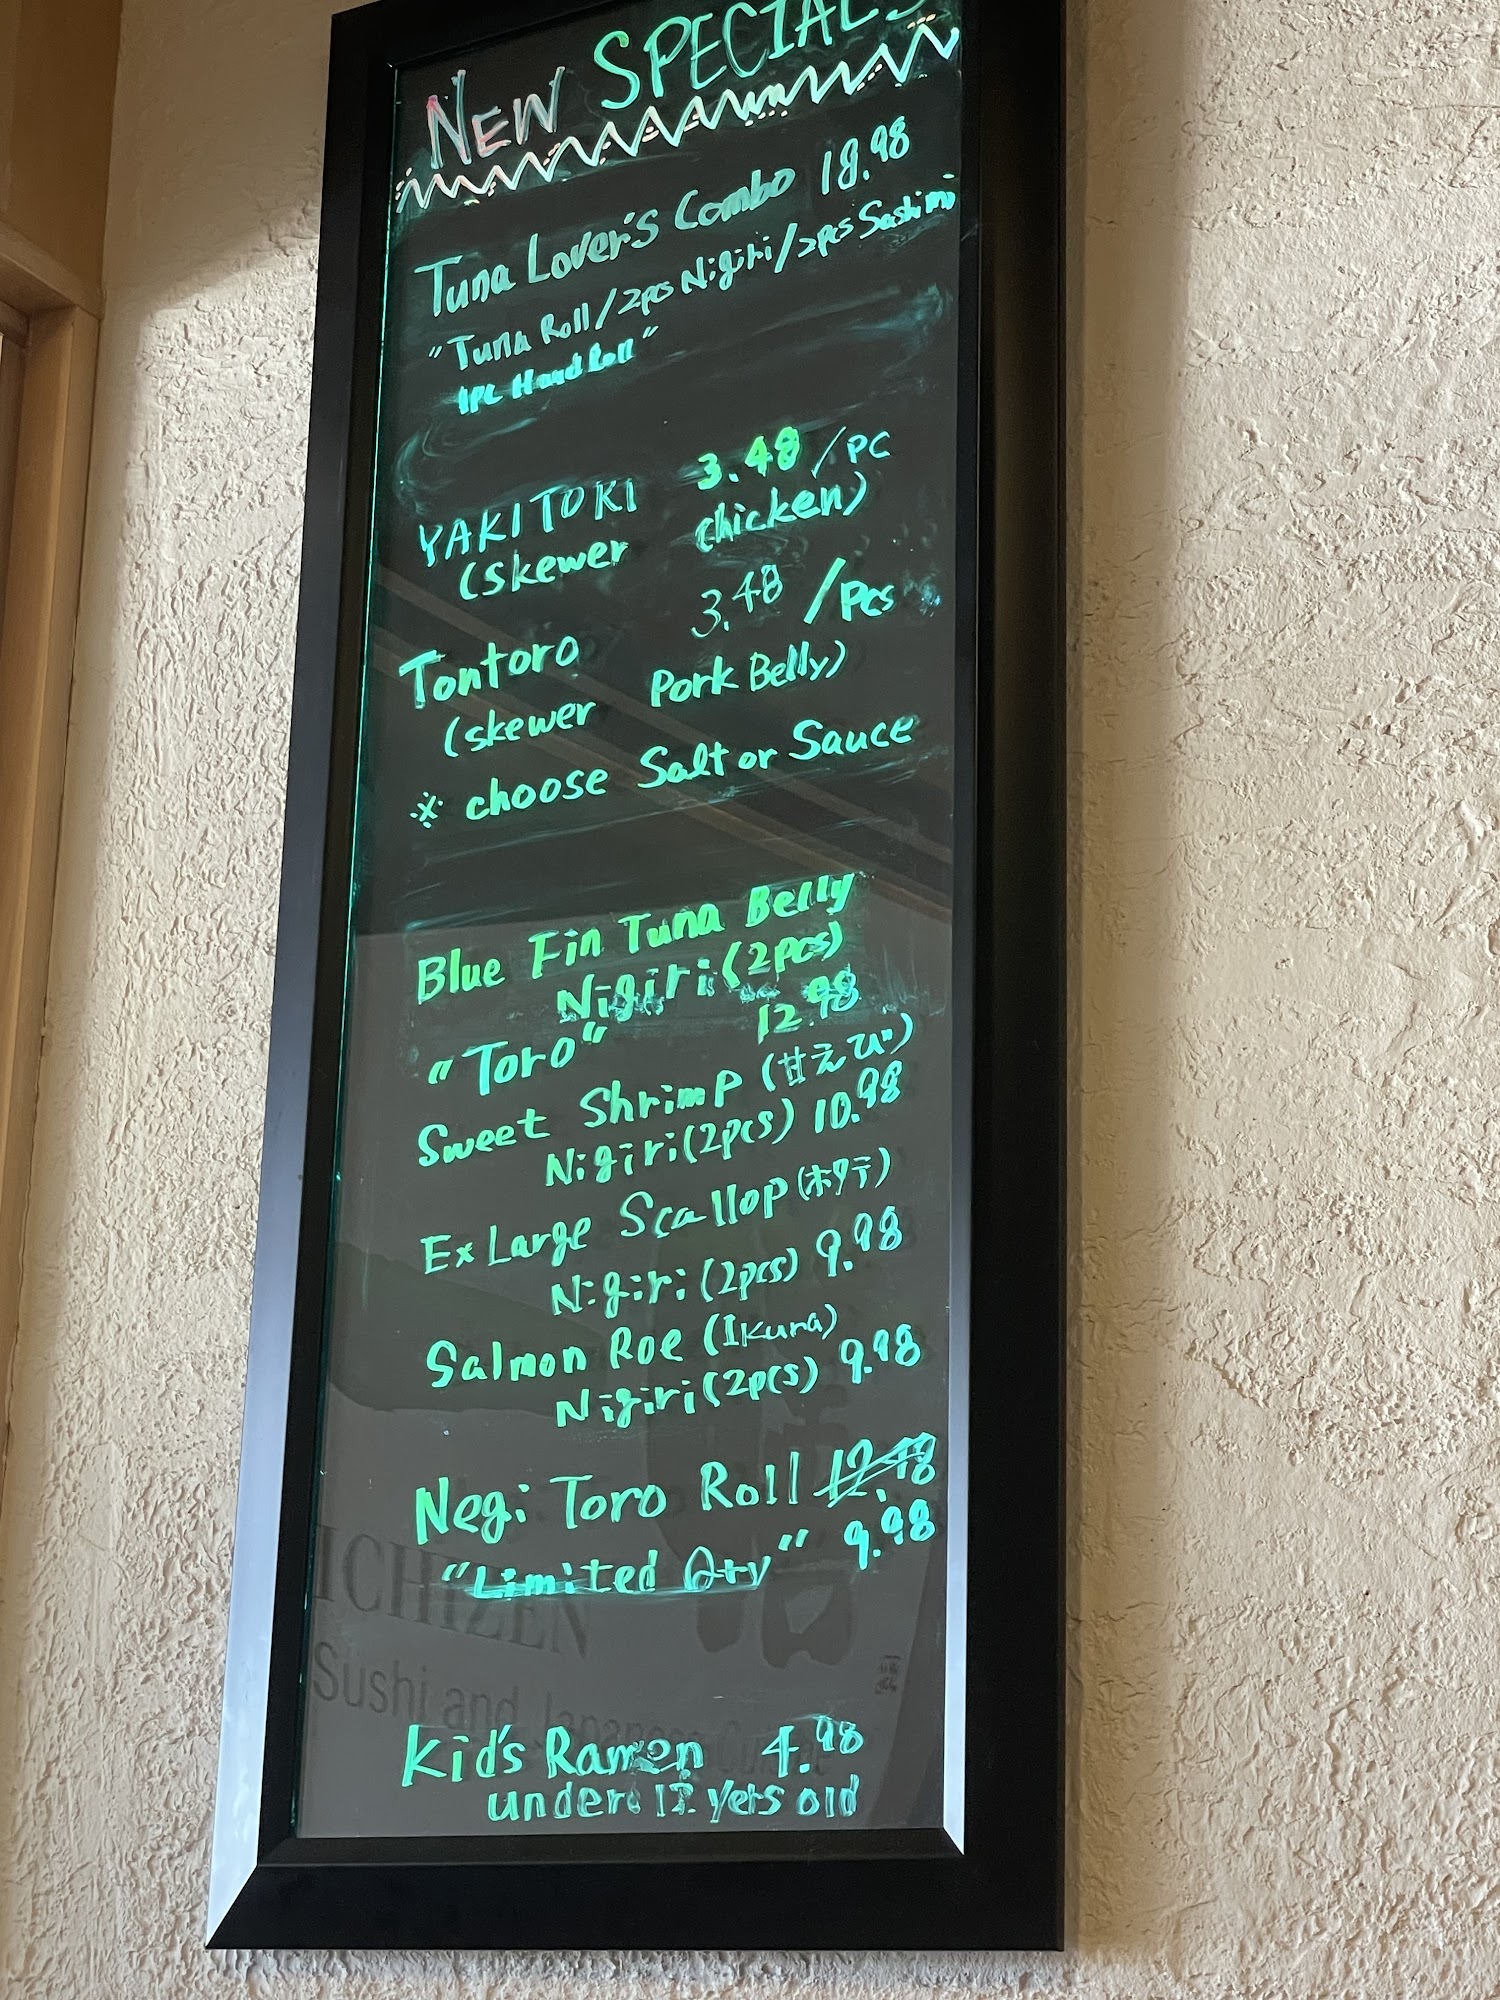 NEW SPECIALS
Tuna Lover's Combo 18.98
"Tuna Roll/2pcs Nigiri/2pcs Sashimi
1PC Hand Roll"
YAKITORI 3.48 /PC
(skewer chicken)
Tontoro 3.48 /Pcs
(skewer Pork Belly)
※ choose Salt or Sauce
Blue Fin Tuna Belly
Nigiri (2pcs)
"Toro" 12.98
Sweet Shrimp (甘えび)
Nigiri (2pcs) 10.98
Ex Large Scallop (ホタテ)
Nigiri (2pcs) 9.98
Salmon Roe (Ikura)
Nigiri (2pcs) 9.98
Negi Toro Roll 12.98
"Limited Qty" 9.98
ICHIZEN
Sushi and Japanese Cuisine
Kid's Ramen 4.98
under 12 yers old